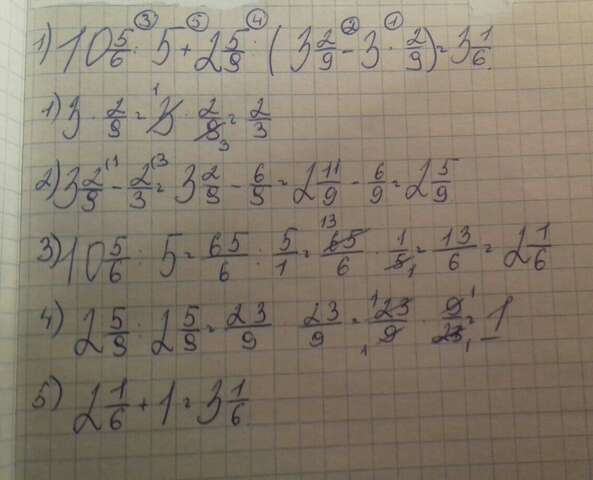 ③ ⑤ ④ ② ①
1) 10 5/6 : 5 + 2 5/9 : (3 2/9 - 3 · 2/9) = 3 1/6
1) 3 · 2/9 = 3 · 2/9 = 2/3
2) 3 2/9 - 2/3 = 3 2/9 - 6/9 = 2 11/9 - 6/9 = 2 5/9
3) 10 5/6 : 5 = 65/6 : 5/1 = 65/6 · 1/5 = 13/6 = 2 1/6
4) 2 5/9 : 2 5/9 = 23/9 : 23/9 = 23/9 · 9/23 = 1
5) 2 1/6 + 1 = 3 1/6